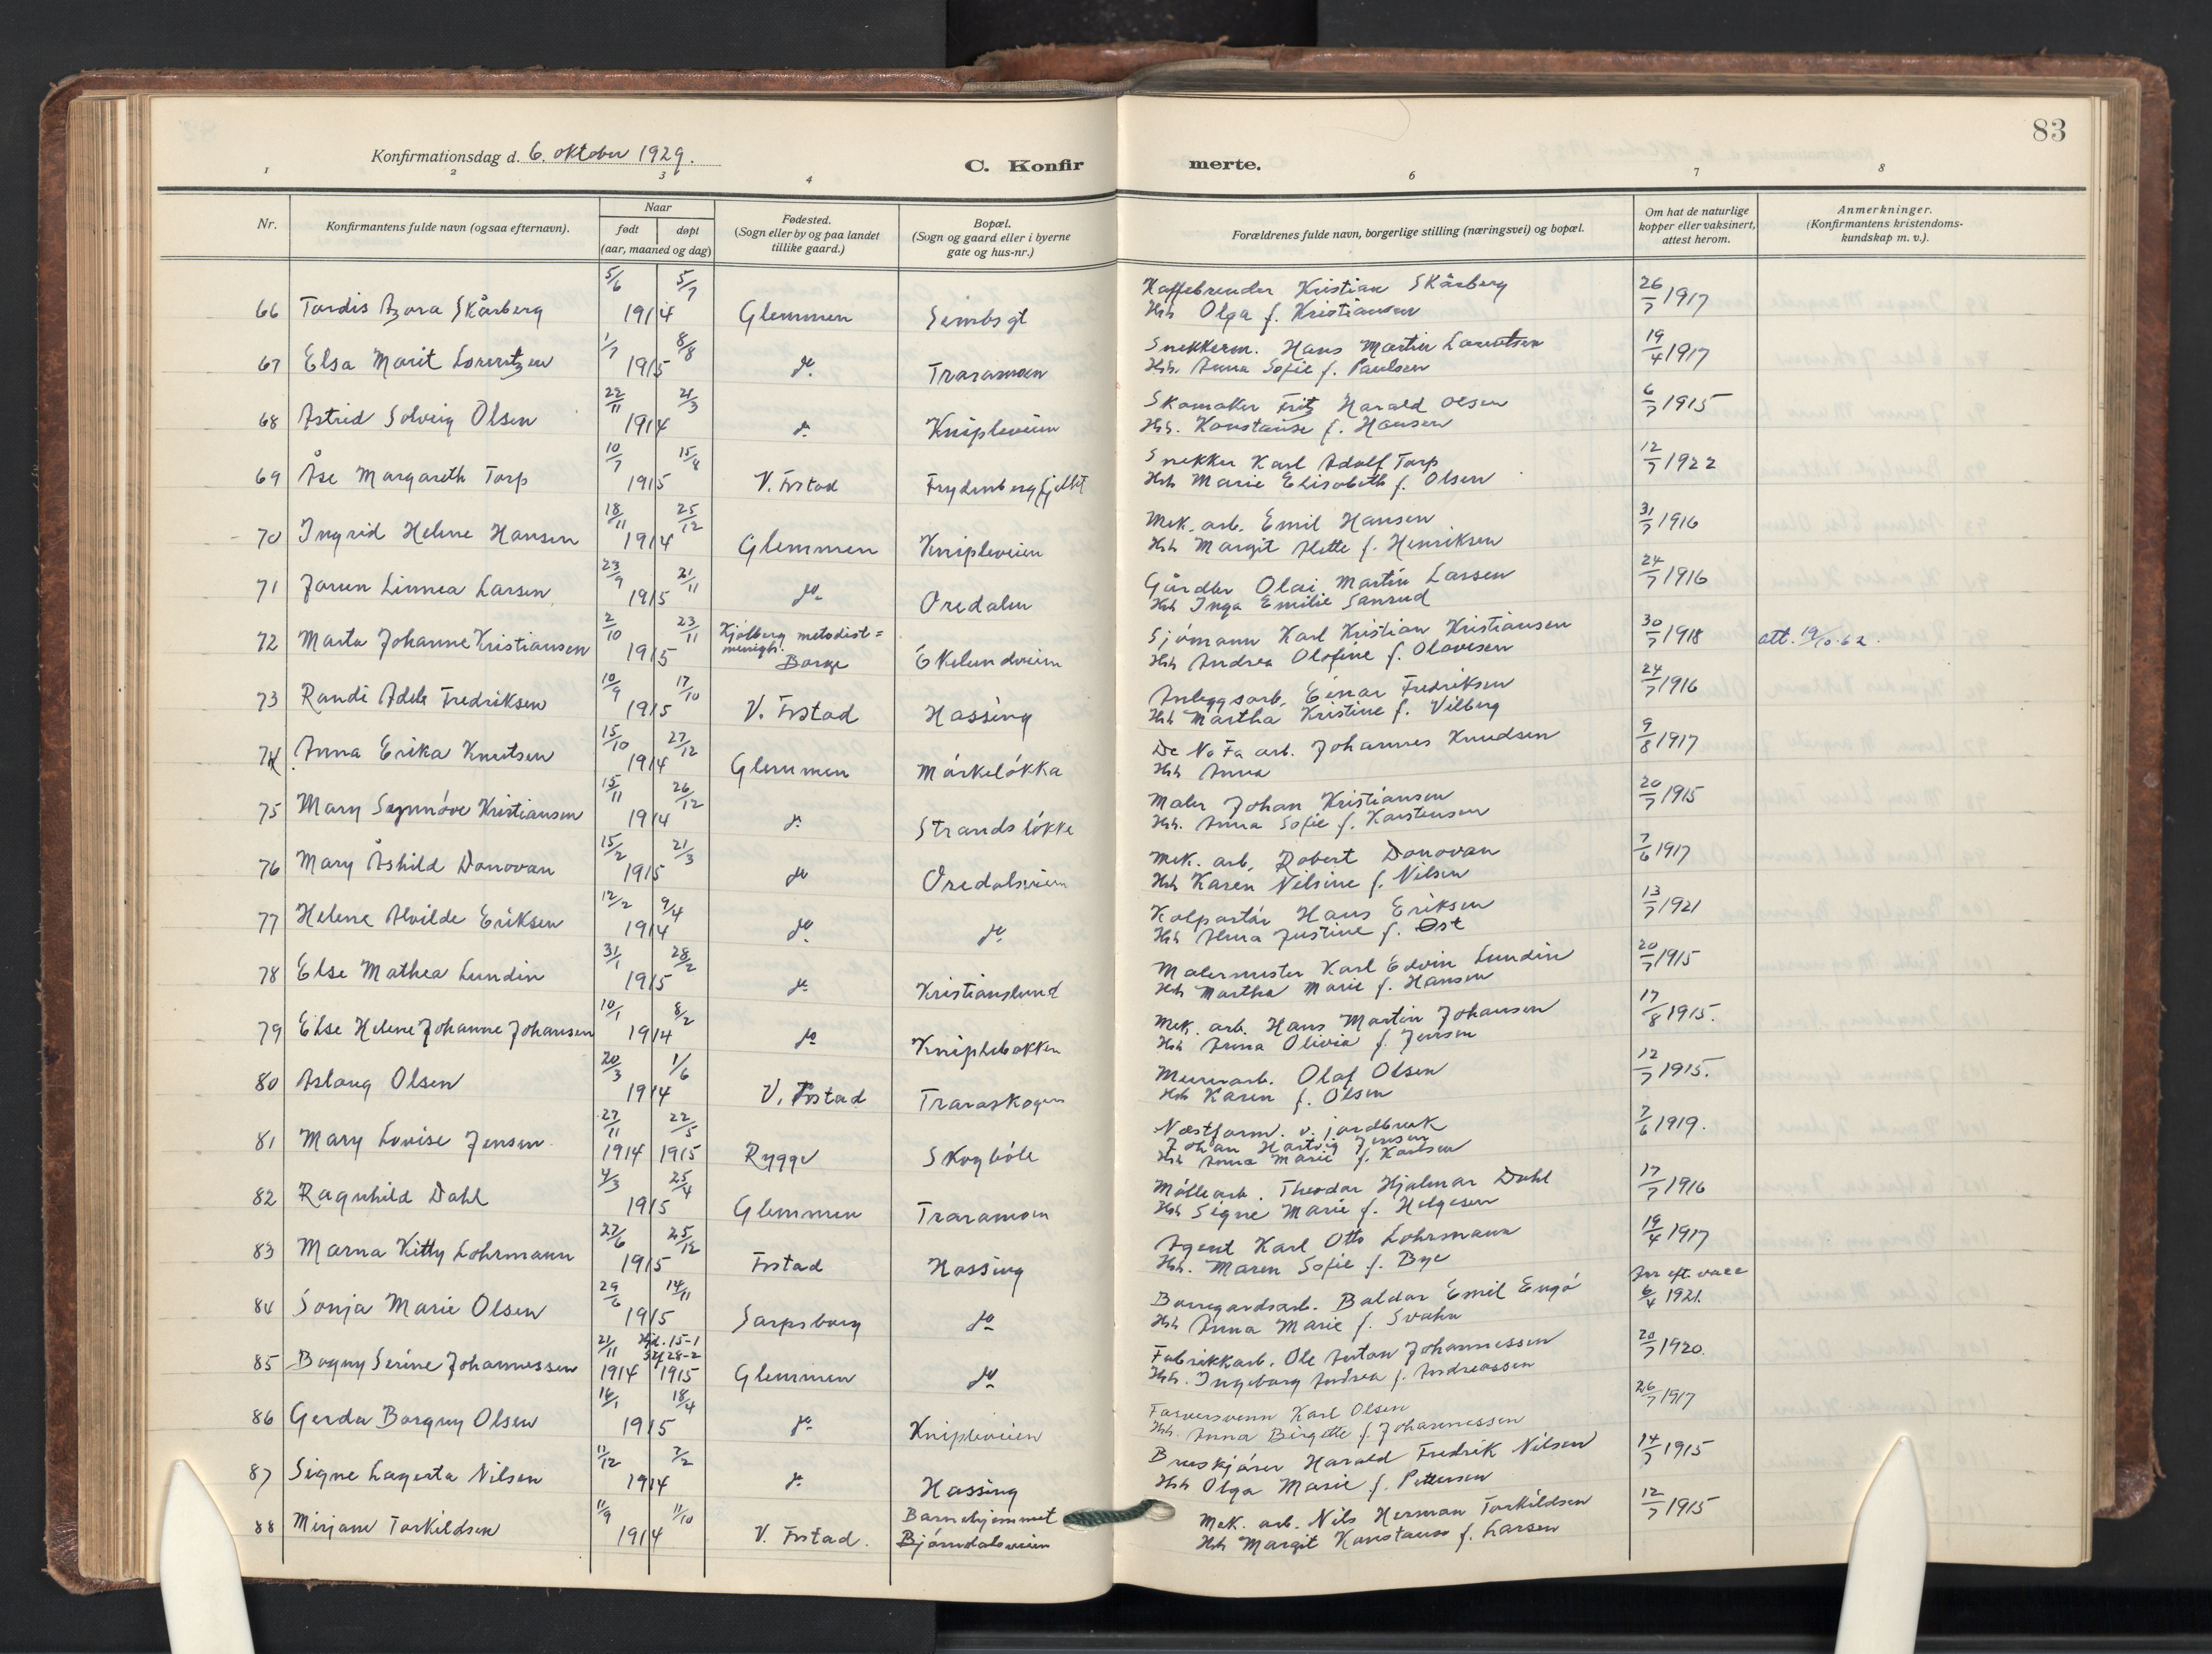 83
Konfirmationsdag d. 6. oktober 1929.
C. Konfir merte.
1 2 3 4 6 7 8
Nr.
Konfirmantens fulde navn (ogsaa efternavn).
Naar
født døpt
(aar, maaned og dag)
Fødested.
(Sogn eller by og paa landet
tillike gaard.)
Bopæl.
(Sogn og gaard eller i byerne
gate og hus-nr.)
Forældrenes fulde navn, borgerlige stilling (næringsvei) og bopæl.
Om hat de naturlige
kopper eller vaksinert,
attest herom.
Anmerkninger.
(Konfirmantens kristendoms-
kundskap m. v.).
5/6 5/7 Kaffebrender Kristian Skårberg 26/7 1917
66 Tordis Azora Skårberg 1914 Glemmen Simbsgt Hsh Olga f. Kristiansen
1/7 8/8 Snekkerm. Hans Martin Lorentsen 19/4 1917
67 Elsa Marit Lorentzen 1915 do Traramoen Hsh. Anna Sofie f. Paulsen
22/11 21/3 Skomaker Fritz Harald Olsen 6/7 1915
68 Astrid Solveig Olsen 1914 do Knipleveien Hsh. Konstanse f. Hansen
10/7 15/8 Snekker Karl Adolf Torp 12/7 1922
69 Åse Margareth Torp 1915 V. Frstad Frydenbergfjellet Hsh Marie Elisabeth f. Olsen
18/11 25/12 Mek. arb. Emil Hansen 31/7 1916
70 Ingrid Helene Hansen 1914 Glemmen Knipleveien Hsh Margit Alette f. Henriksen
23/9 21/11 Gårdbr Olai Martin Larsen 24/7 1916
71 Jorun Linnea Larsen 1915 do Oredalen Hsh Inga Emilie Sanrud
2/10 23/11 Kjölberg metodist= Sjömann Karl Kristian Kristiansen 30/7 1918 att. 19/10.62.
72 Marta Johanne Kristiansen 1915 menigh. Borge Ekelundveien Hsh Andrea Olofine f. Olavesen
10/9 17/10 Anleggsarb. Einar Fredriksen 24/7 1916
73 Randi Adele Fredriksen 1915 V. Frstad Hassing Hsh Martha Kristine f. Vilberg
15/10 27/12 De No Fa arb. Johannes Knudsen 9/8 1917
74 Anna Erika Knutsen 1914 Glemmen Mörkelökka Hsh Anna
15/11 26/12 Maler Johan Kristiansen 20/7 1915
75 Mary Synnöve Kristiansen 1914 do Strandslökke Hsh. Anna Sofie f. Karstensen
15/2 21/3 Mek. arb. Robert Donovan 7/6 1917
76 Mary Åshild Donovan 1915 do Oredalsveien Hsh Karen Nilsine f. Nilsen
12/2 9/4 Kolportör Hans Eriksen 13/7 1921
77 Helene Alvilde Eriksen 1914 do do Hsh Alma Justine f. Øst
31/1 28/2 Malermester Karl Edvin Lundin 20/7 1915
78 Else Mathea Lundin 1915 do Kristianslund Hsh Martha Marie f. Hansen
10/1 8/2 Mek. arb. Hans Martin Johansen 17/8 1915.
79 Else Helene Johanne Johansen 1914 do Kniplebakken Hsh Anna Olivia f. Jensen
20/3 1/6 Murerarb. Olaf Olsen 12/7 1915.
80 Aslaug Olsen 1914 V. Frstad Traraskogen Hsh Karen f. Olsen
27/11 22/5 Næstform. v. jordbruk 7/6 1919.
81 Mary Lovise Jensen 1914 1915 Rygge Skogböle Johan Hartvig Jensen
Hsh Anna Marie f. Karlsen
4/3 25/4 Möllearb. Theodor Hjalmar Dahl 17/7 1916
82 Ragnhild Dahl 1915 Glemmen Traramoen Hsh Signe Marie f. Helgesen
27/6 25/12 Agent Karl Otto Lohrmann 19/4 1917
83 Marna Kitty Lohrmann 1915 Frstad Hassing Hsh. Maren Sofie f. Bye
29/6 14/11 Borregardsarb. Baldar Emil Engö
84 Sonja Marie Olsen 1915 Sarpsborg do Hsh Anna Marie f. Svahn 6/4 1921.
21/11 Hjd. 15-1 28-2 Fabrikkarb. Ole Anton Johannessen 20/7 1920.
85 Bogny Serine Johannessen 1914 1915 Glemmen do Hsh. Ingeborg Andrea f. Andreassen
14/1 18/4 Farversvenn Karl Olsen 26/7 1917
86 Gerda Borgny Olsen 1915 do Knipleveien Hsh. Anna Birgitte f. Johannessen
11/12 7/2 Harald Fredrik Nilsen 14/7 1915
87 Signe Lagerta Nilsen 1914 do Hassing Hsh Olga Marie f. Pettersen
11/9 11/10 Barnehjemmet Mek. arb. Nils Herman Torkildsen 12/7 1915
88 Mirjam Torkildsen 1914 V. Frstad. Bjørndalsveien Hsh Margit Konstanse f. Larsen